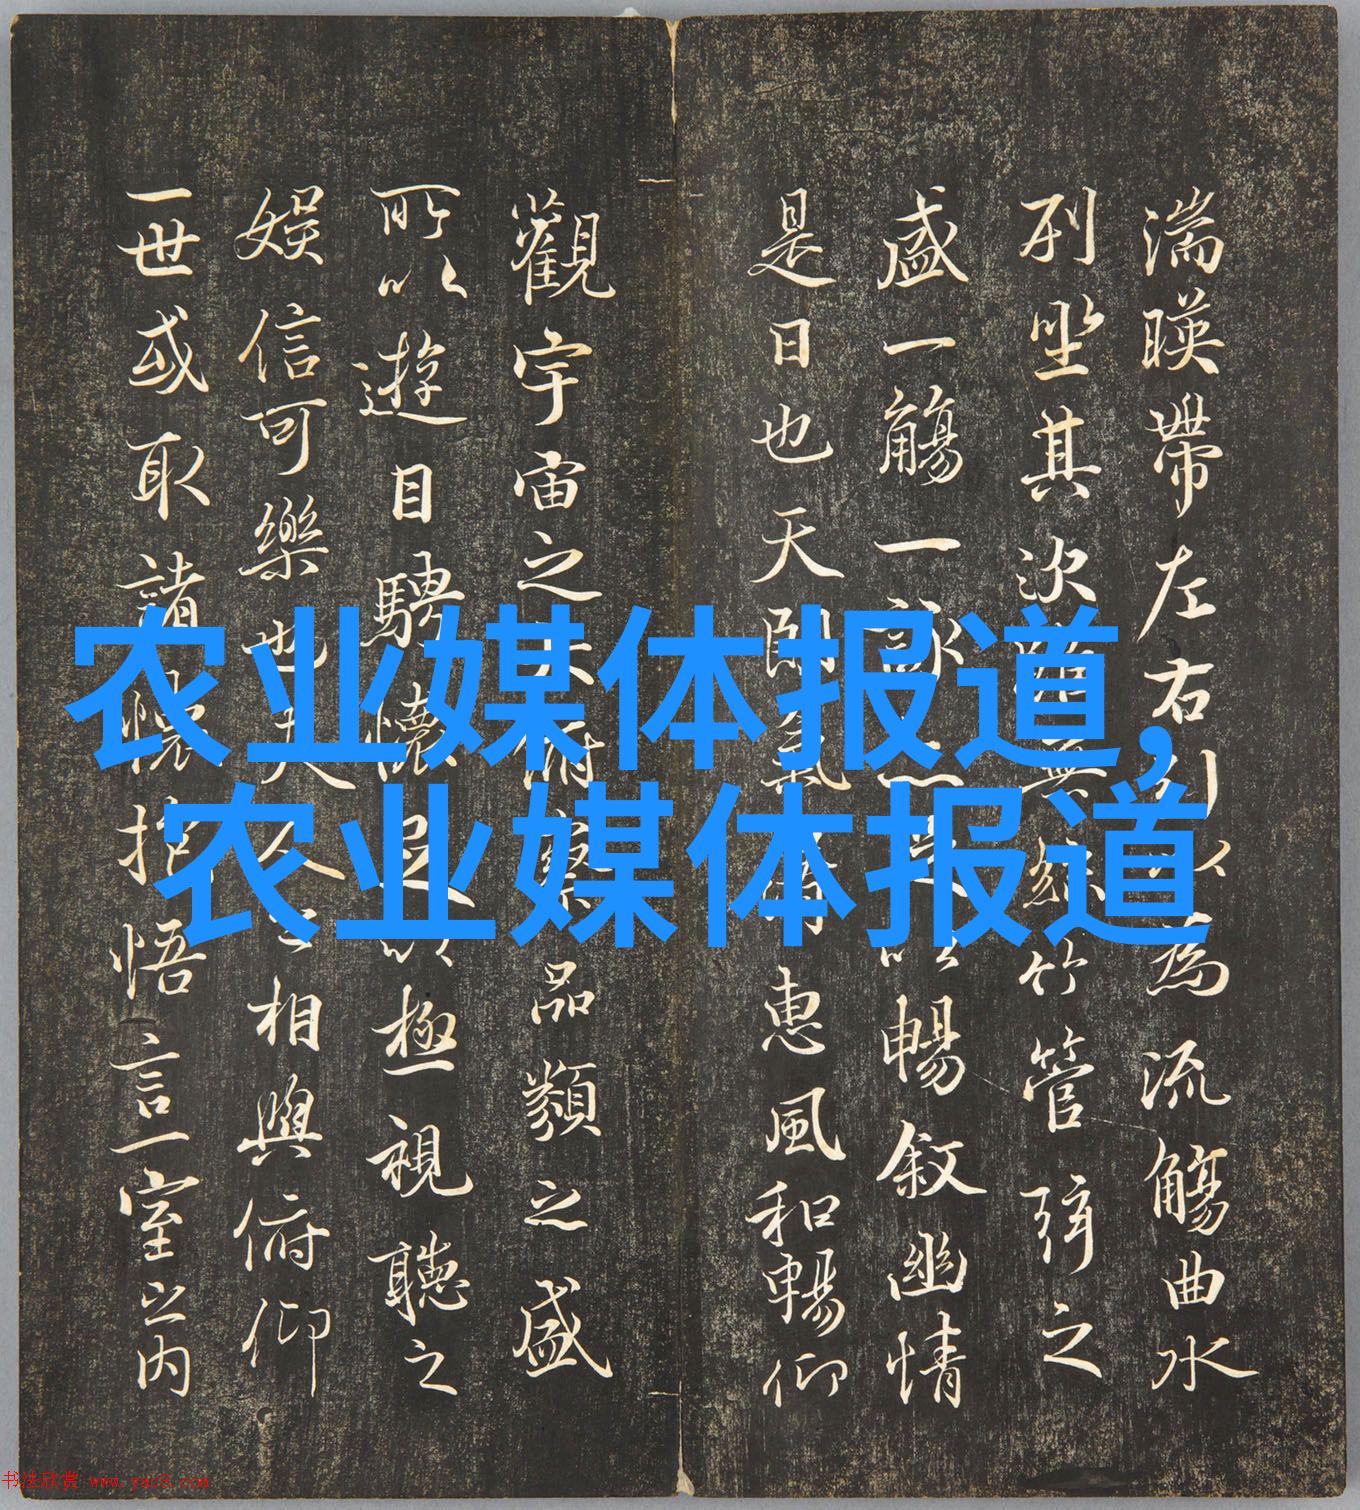 湍暎帶左右引以為流觴曲水
列坐其次雖無絲竹管弦之
盛一觴一詠亦足以暢敘幽情
是日也天朗氣清惠風和暢仰
觀宇宙之大俯察品類之盛
所以遊目騁懷足以極視聽之
娛信可樂也夫人之相與俯仰
一世或取諸懷抱悟言一室之内
农业媒体报道,
农业媒体报道
书法欣赏 www.yac8.com